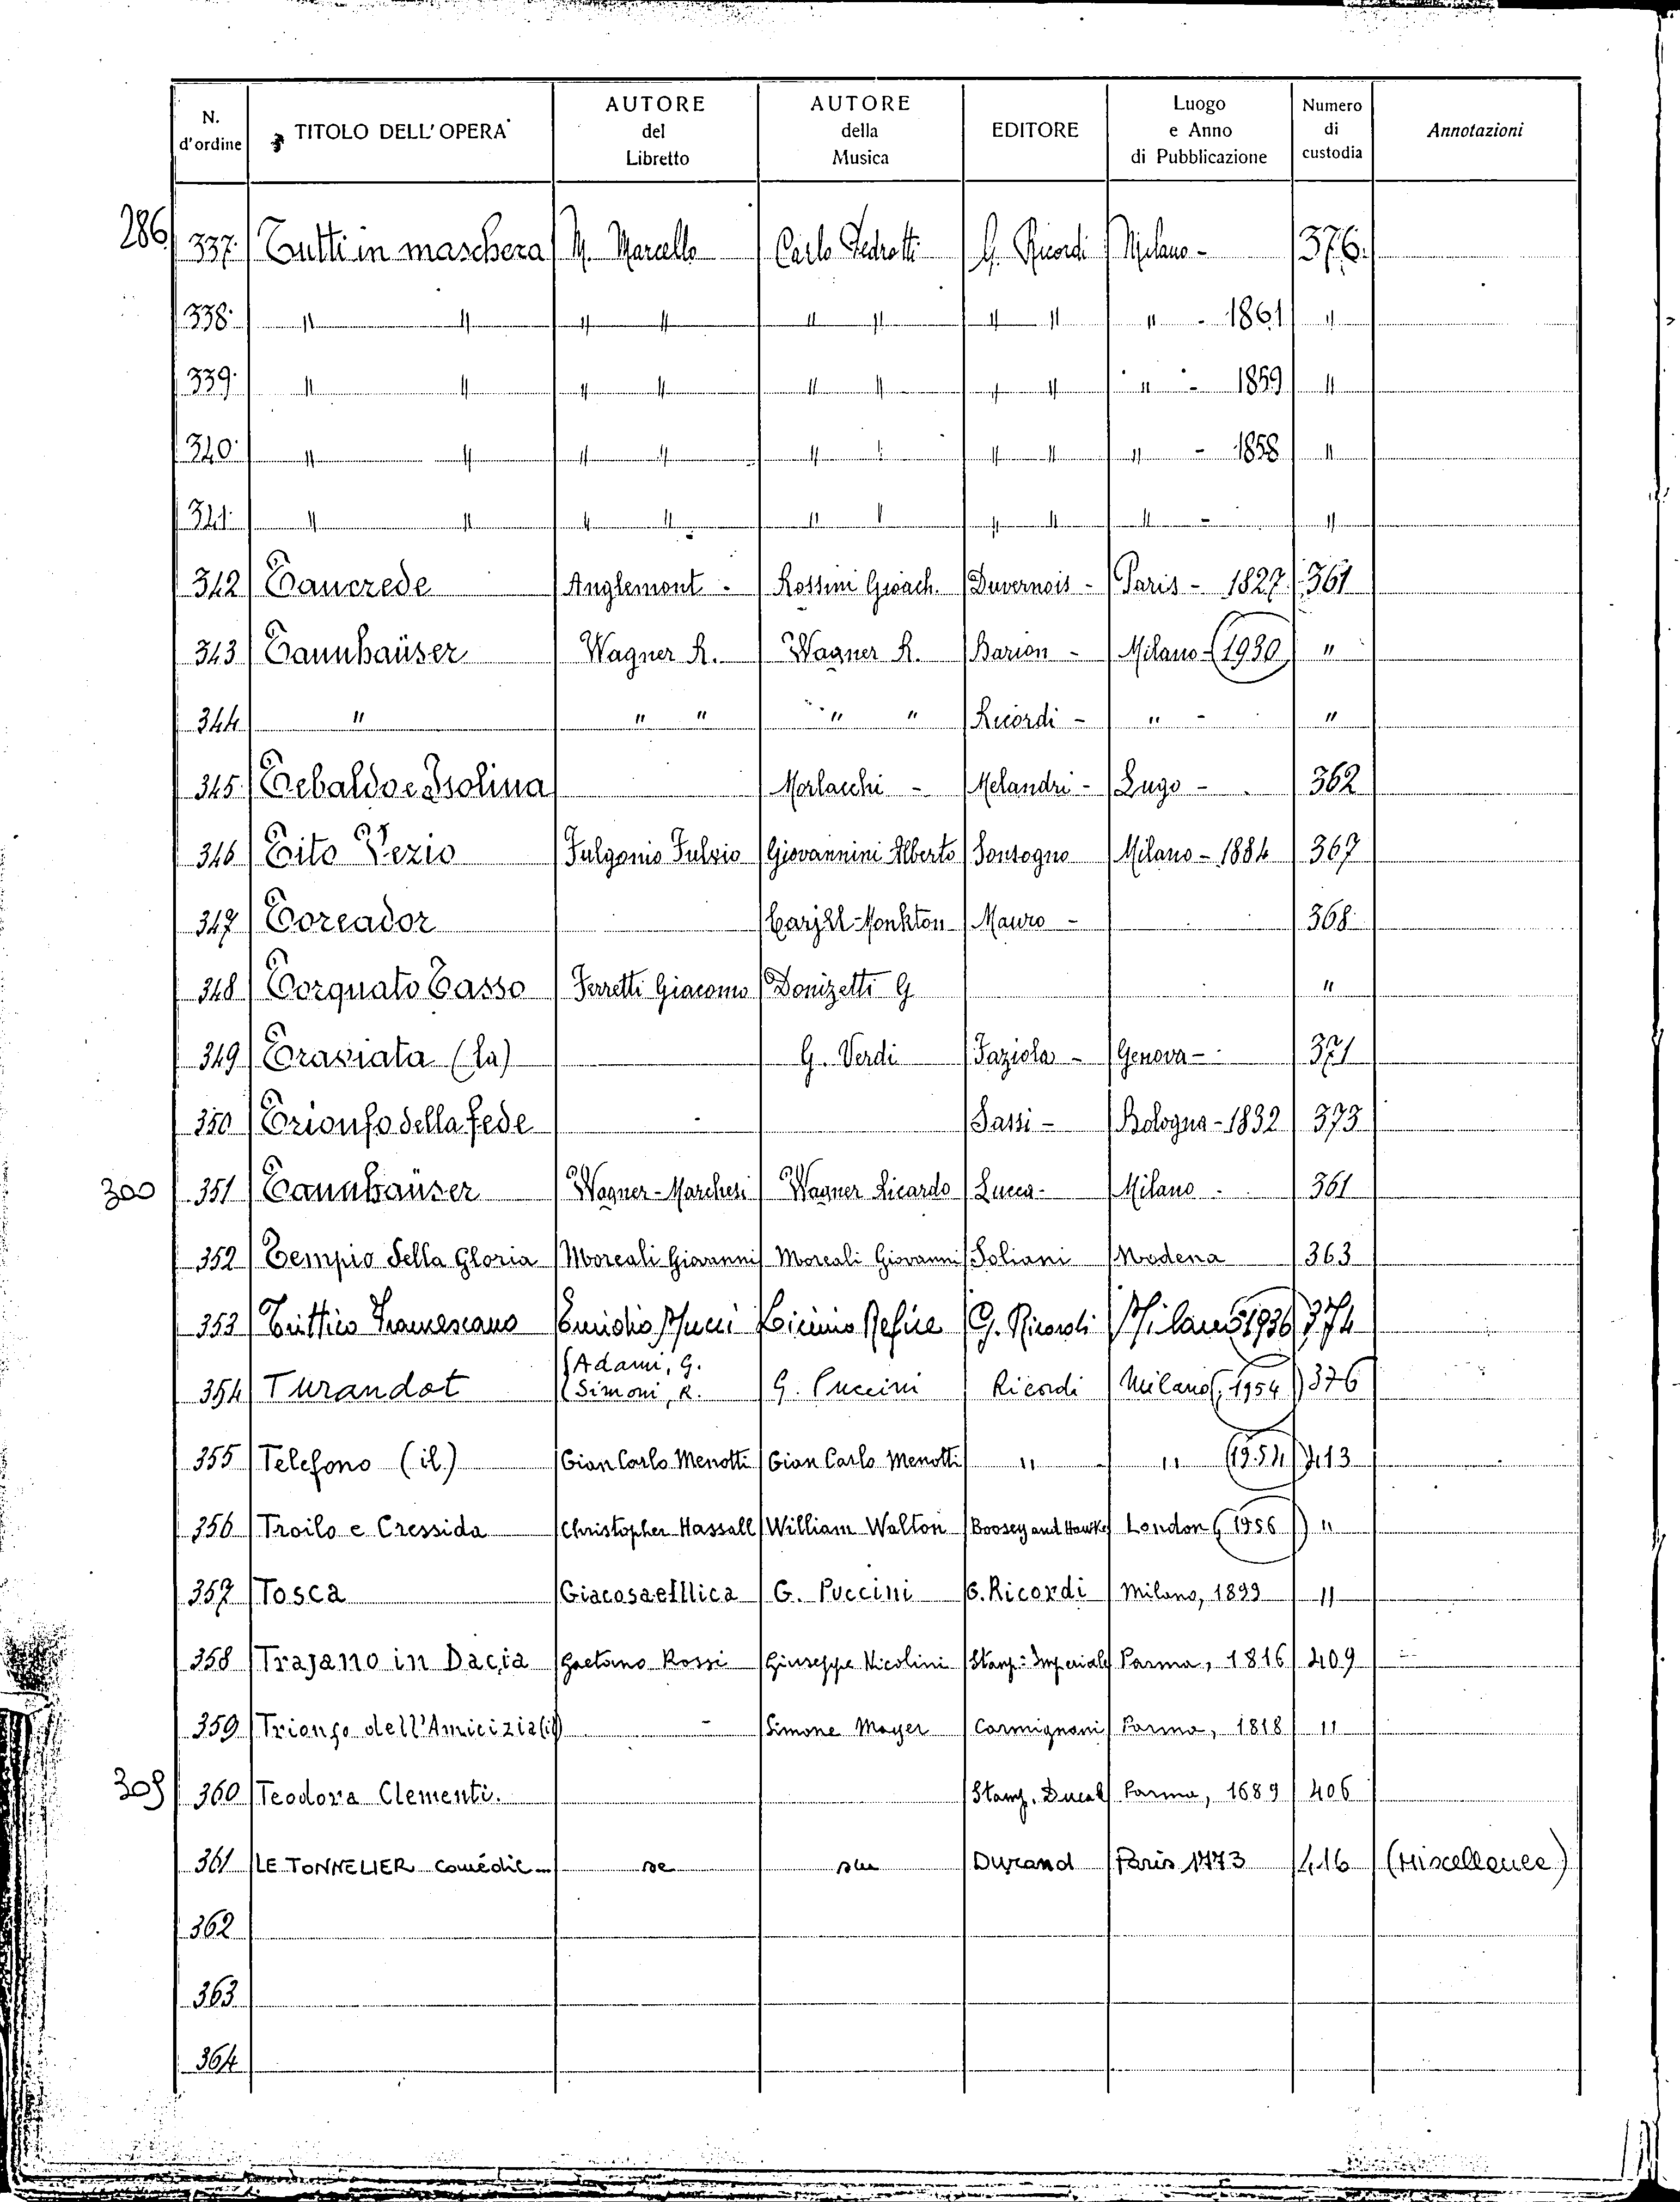 N. d'ordine TITOLO DELL'OPERA AUTORE del Libretto AUTORE della Musica EDITORE Luogo e Anno di Pubblicazione Numero di custodia Annotazioni
286 337. Tutti in maschera M. Marcello Carlo Pedrotti G. Ricordi Milano - 376.
338. " " " " " " " " " - 1861 "
339. " " " " " " " " " - 1859 "
340. " " " " " " " " - 1858 "
341. " " " " " " " " " - "
342 Tancrede Anglemont - Rossini Gioach. Duvernois - Paris - 1827. 361
343 Tannhaüser Wagner R. Wagner R. Barion - Milano - (1930) "
344 " " " " " Ricordi - " - "
345. Tebaldo e Isolina Morlacchi - Melandri - Lugo - 362
346 Tito Vezio Fulgonio Fulvio Giovannini Alberto Sonzogno Milano - 1884 367
347 Toreador Mauro - 368
348 Torquato Tasso Ferretti Giacomo Donizetti G "
349 Traviata (la) G. Verdi Faziola - Genova - 371
350 Trionfo della fede - Sassi - Bologna - 1832 373
300 351 Tannhaüser Wagner - Marchesi Wagner Ricardo Lucca - Milano - 361
352 Tempio della Gloria Moreali Giovanni Moreali Giovanni Soliani Modena 363
353 Trittico Francescano Emidio Mucci Licinio Refice G. Ricordi Milano 1936 374
354 Turandot Adami, G. Simoni, R. G. Puccini Ricordi Milano, 1954 376
355 Telefono (il) Gian Carlo Menotti Gian Carlo Menotti " " (1954) 413
356 Troilo e Cressida Christopher Hassall William Walton Boosey and Hawkes London, 1956 "
357 Tosca Giacosa e Illica G. Puccini G. Ricordi Milano, 1899 "
358 Trajano in Dacia Gaetano Rossi Giuseppe Nicolini Stamp: Imperiale Parma, 1816 409
359 Trionfo dell'Amicizia (il) - Simone Mayer Carmignani Parma, 1818 "
309 360 Teodora Clementi. Stamp. Ducal Parma, 1689 406
361 LE TONNELIER comédie... Durand Paris 1773 416 (Miscellanea)
362
363
364